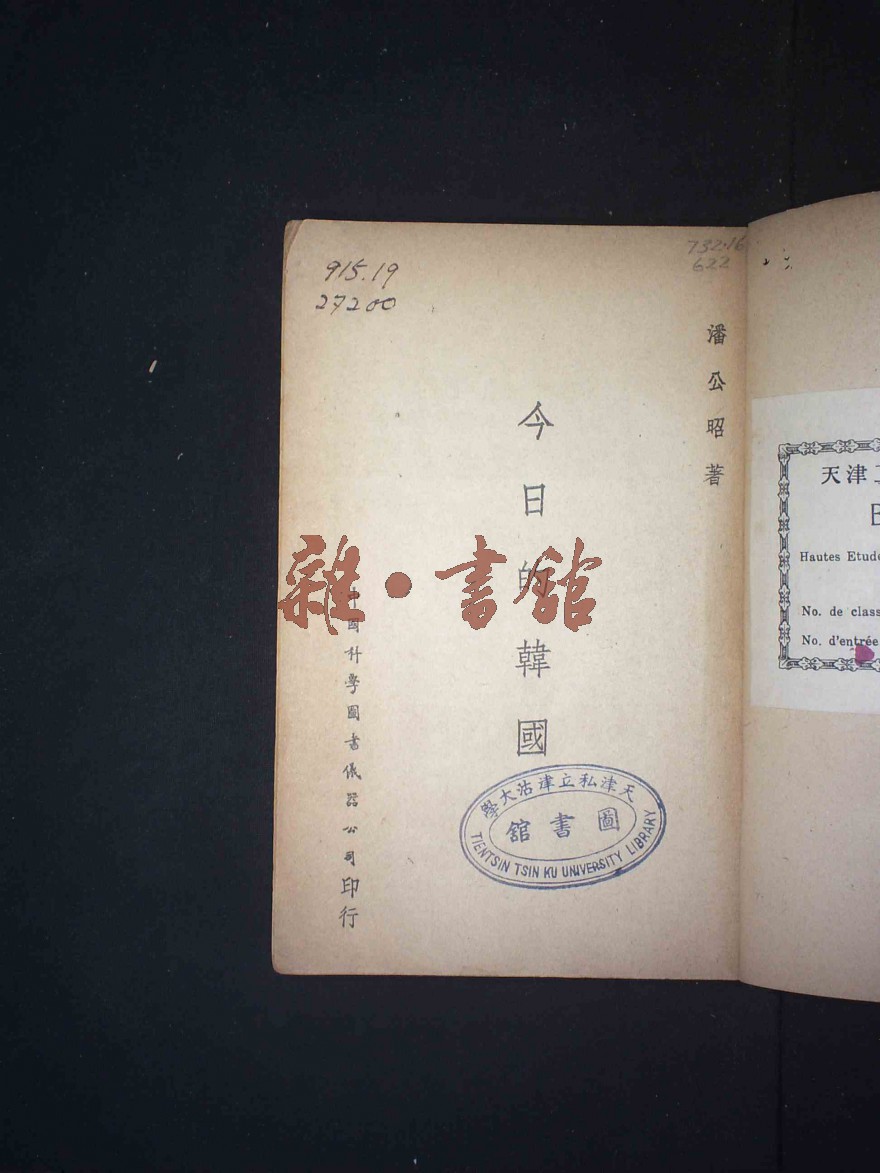 915.19
27200
732.16
622
潘公昭著
今日的韓國
中國科學圖書儀器公司印行
雜·書館
天津私立津沽大學
圖書館
TIENTSIN TSIN KU UNIVERSITY LIBRARY
天津
Hautes Etude
No. de class
No. d'entrée